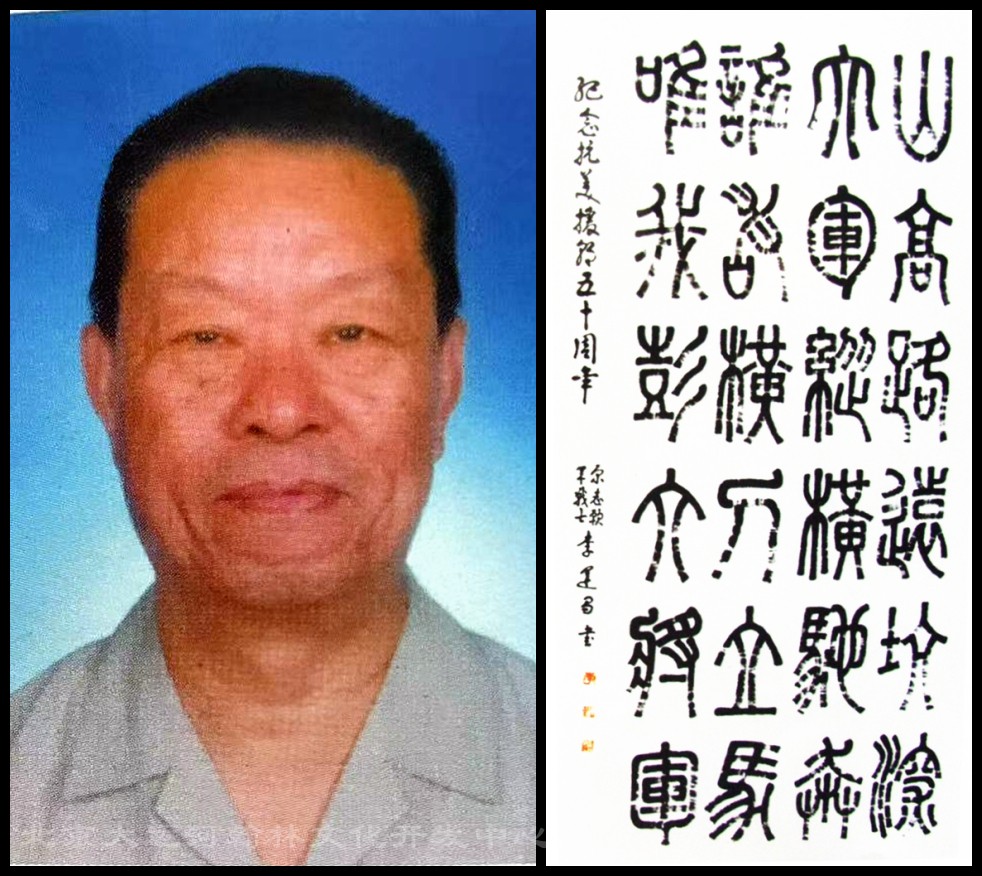 山高路遠坑深
大軍縱橫馳奔
誰敢橫刀立馬
唯我彭大將軍
纪念抗美援朝五十周年
原志愿
军战士
李 书
北京大运河翰林文化开发中心